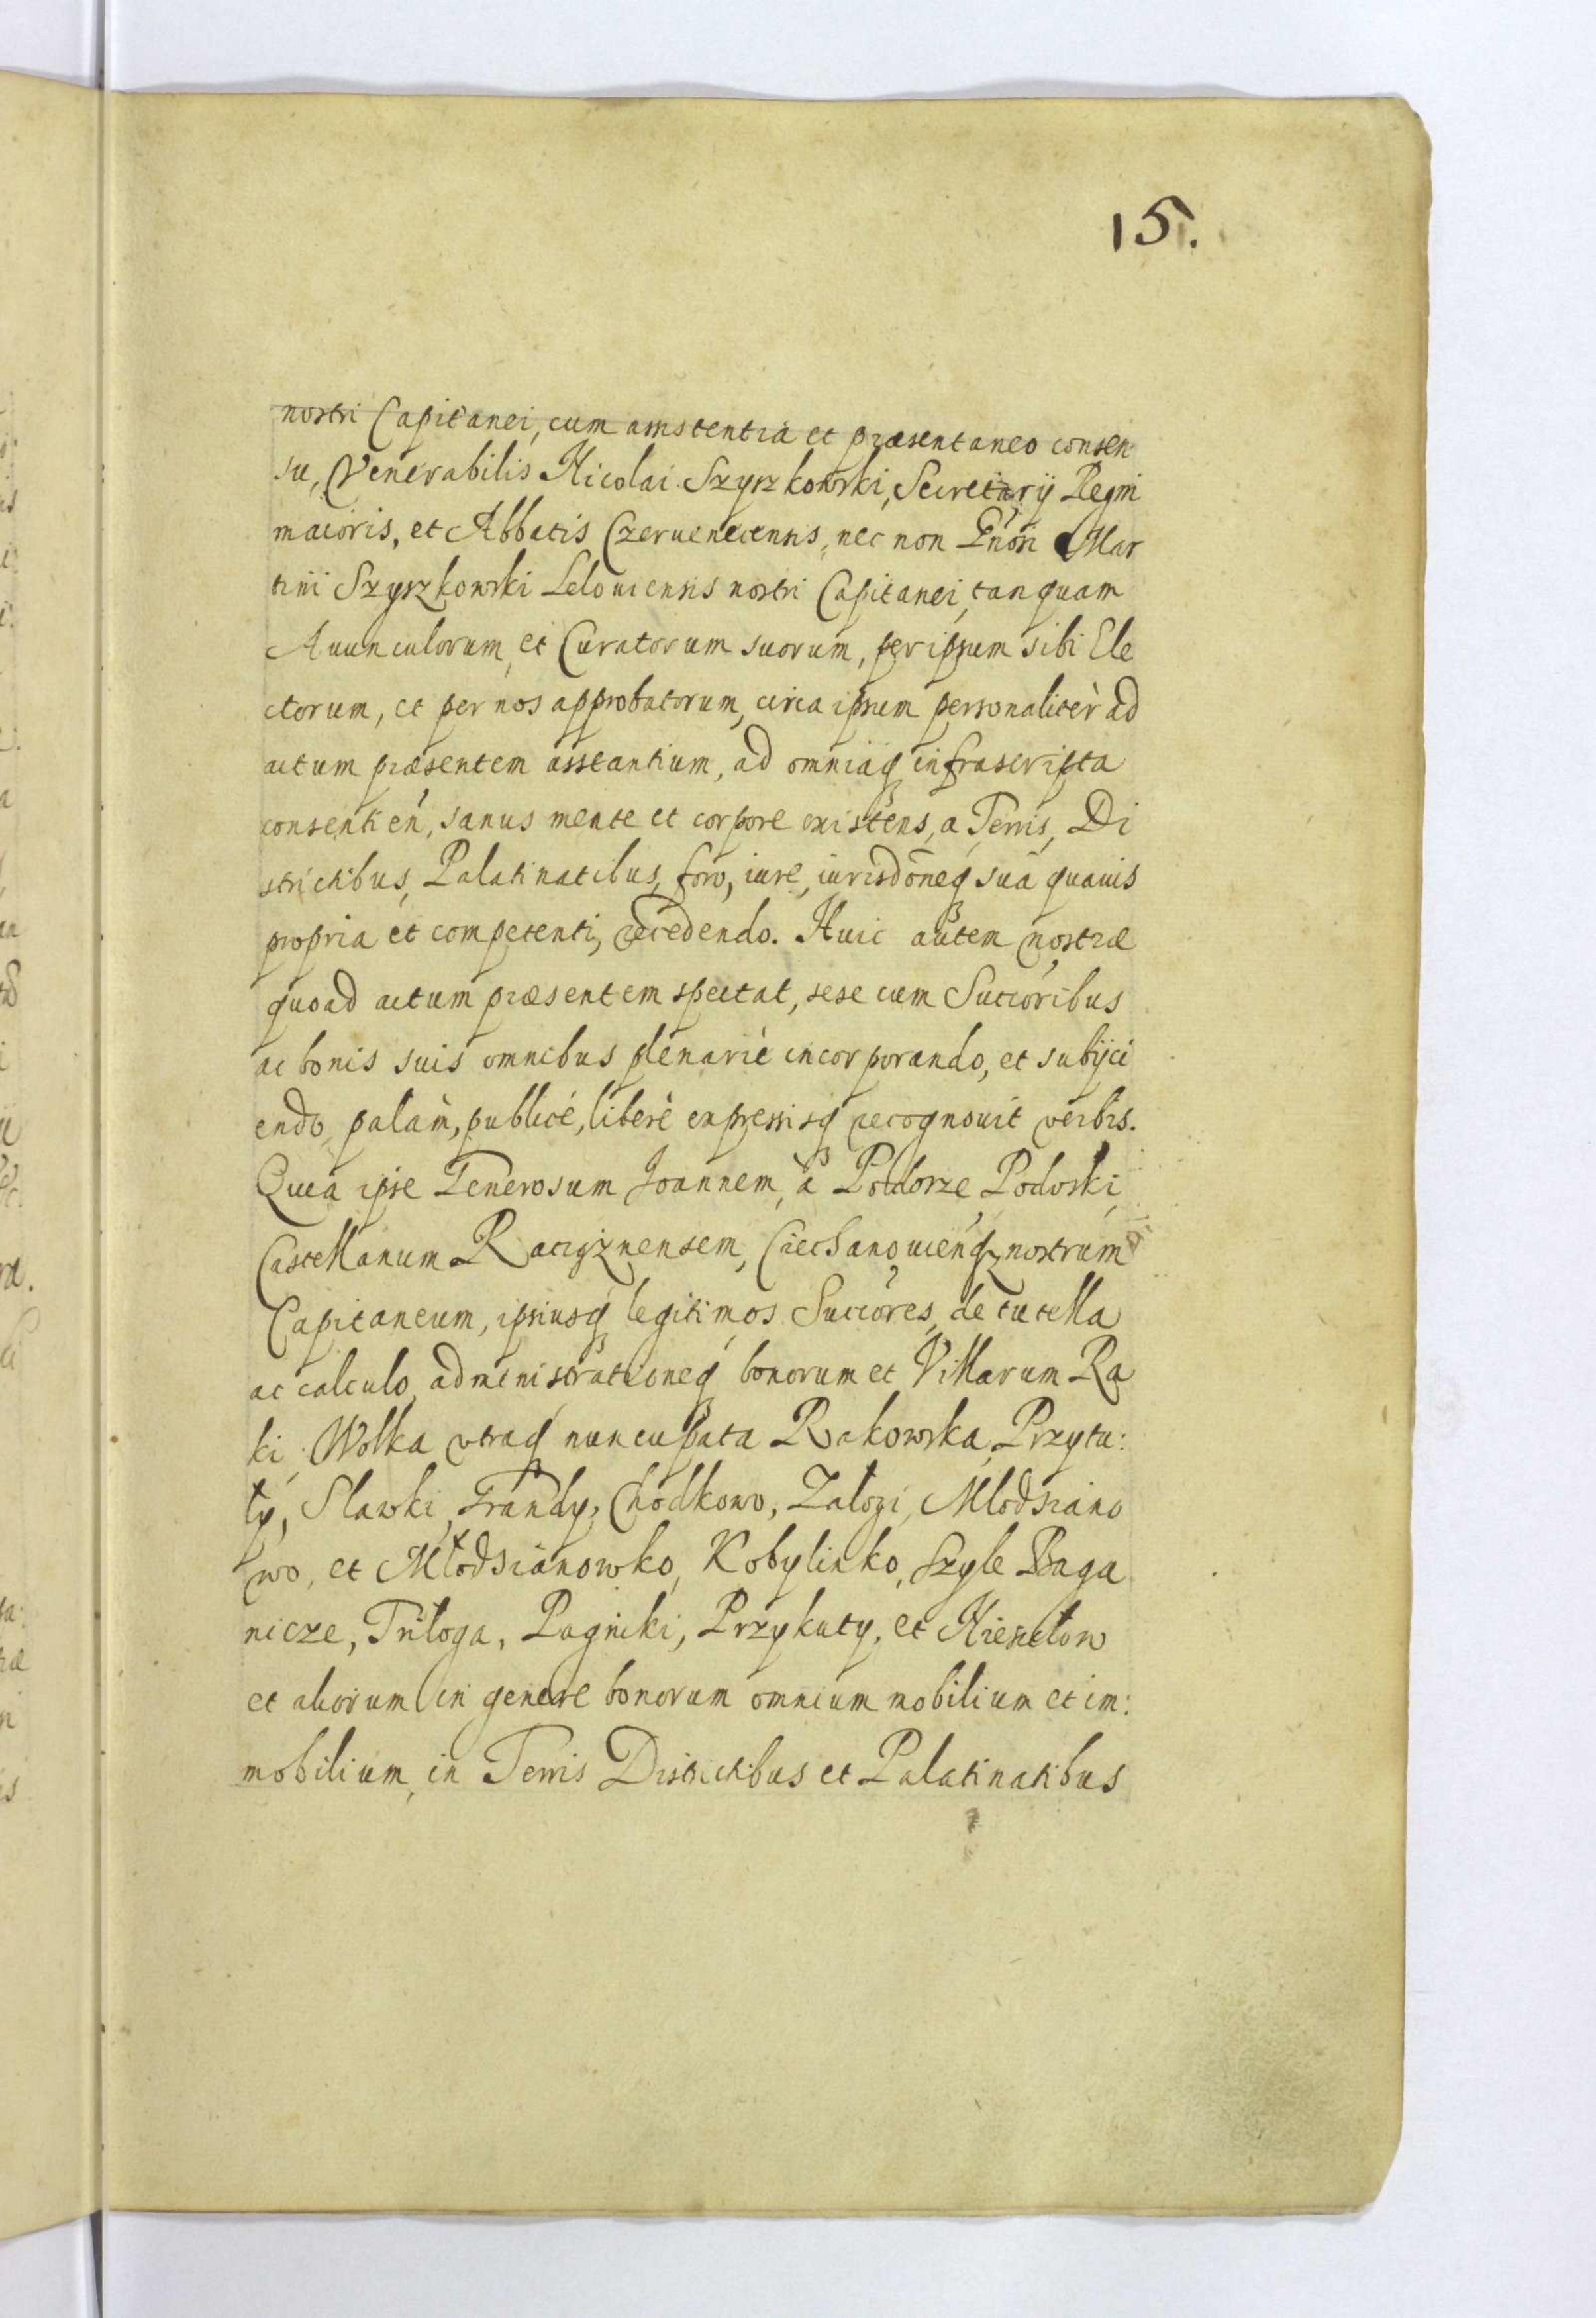 15.
nostri Capitanei, cum assistentia et præsentaneo consen
su, Venerabilis Nicolai Szyszkowski, Secretarij Regni
maioris, et Abbatis Czeruenecensis, nec non Gnosi Mar
tini Szyszkowski Leloviensis nostri Capitanei, tanquam
Auunculorum, et Curatorum suorum, per ipsum sibi Ele
ctorum, et per nos approbatorum, circa ipsum personalitèr ad
actum præsentem asstantium, ad omniaq infrascripta
consentien, sanus mente et corpore existens, a Terris, Di
strictibus, Palatinatibus, foro, iure, iurisdōneq suâ quauis
propria et competenti, recedendo. Huic autem nostræ
quoad actum præsentem spectat, sese cum Succoribus
ac bonis suis omnibus plenariè incorporando, et subijci
endo, palàm, publicé, liberè expressisq recognouit verbis.
Quia ipse Generosum Joannem, à Podorze Podoski,
Castellanum Raciyznensem, Ciechanouienq nostrum
Capitaneum, ipsiusq legitimos Succores, de tutella
ac calculo administrationeq bonorum et Villarum Ra
ki, Wolka vtraq nuncupata Rakowska, Przytu:
ły, Slawki, Frandy, Chodkowo, Załogi, Mlodziano
wo, et Młodzianowko, Kobylinko, Szyle Baga
nicze, Triłoga, Pagniki, Przykuty, et
et aliorum in genere bonorum omnium mobilium et im:
mobilium, in Terris Districtibus et Palatinatibus